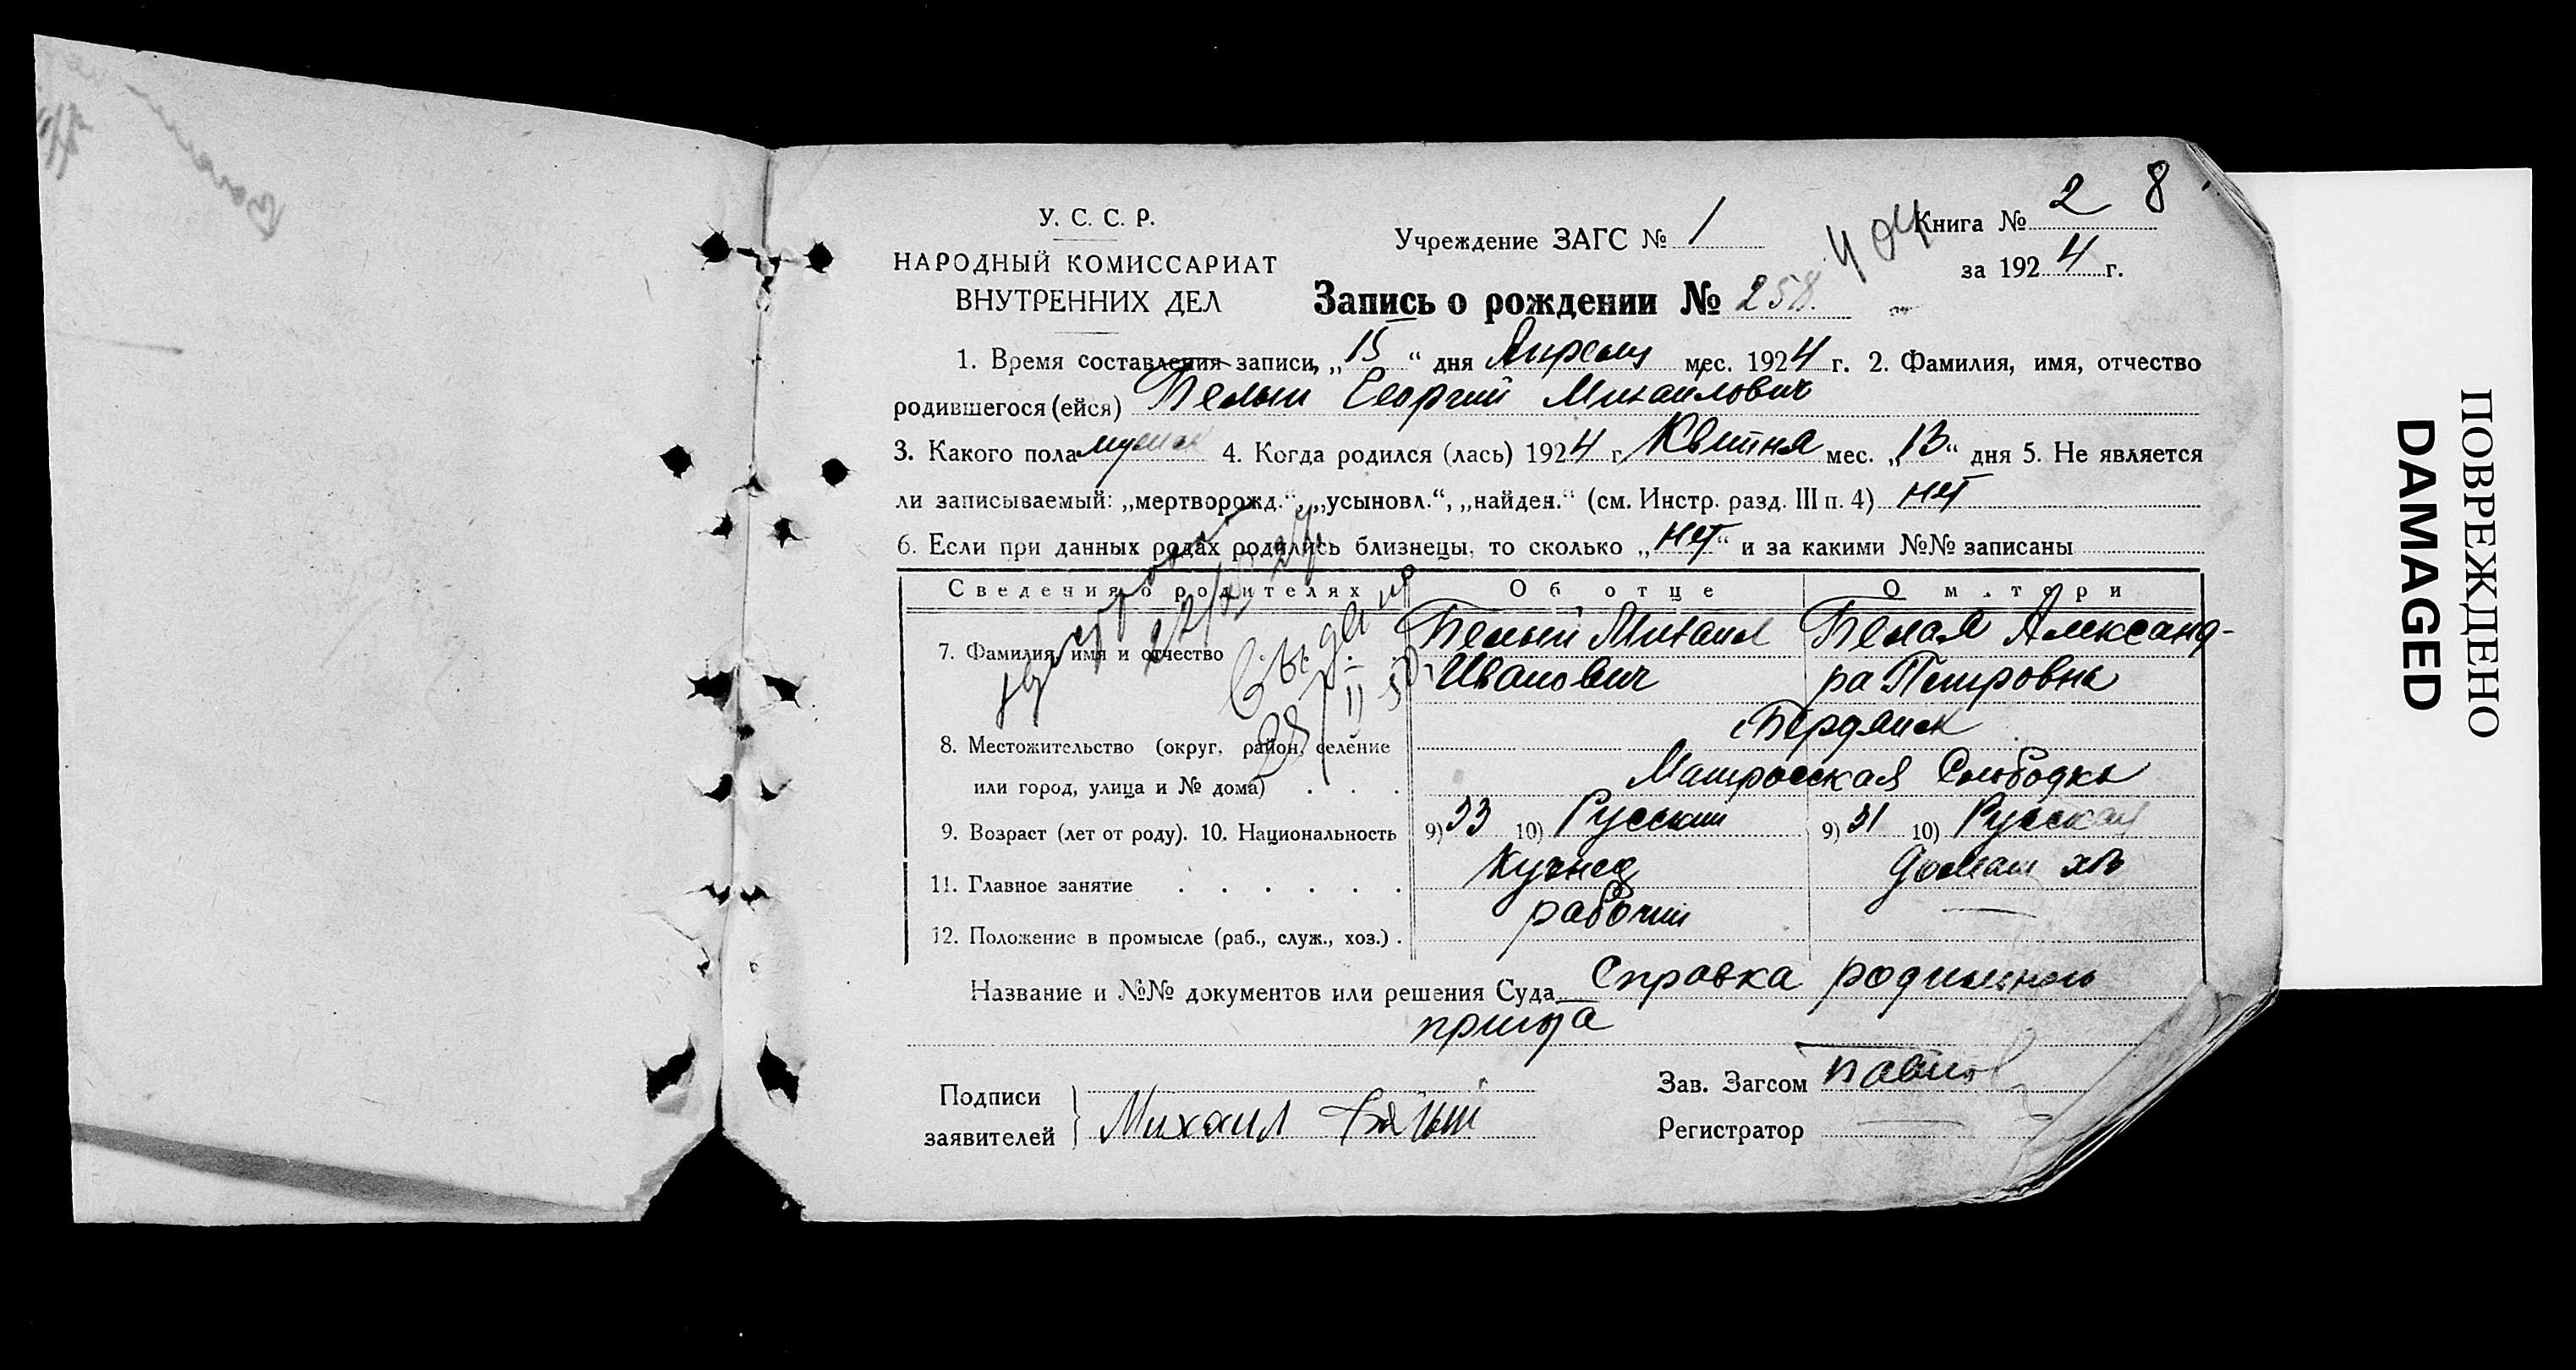 У. С. С. Р.
НАРОДНЫЙ КОМИССАРИАТ
ВНУТРЕННИХ ДЕЛ
Учреждение ЗАГС № 1
Книга № 2 8
за 1924 г.
Запись о рождении № 258
1. Время составления записи, „15“ дня Апреля мес. 1924 г. 2. Фамилия, имя, отчество
родившегося (ейся) Белый Георгий Михайлович
3. Какого пола мужск 4. Когда родился (лась) 1924 г. Квітня мес. „13“ дня 5. Не является
ли записываемый: „мертворожд.“, „усыновл.“, „найден.“ (см. Инстр. разд. III п. 4) нет
6. Если при данных родах родились близнецы, то сколько „нет“ и за какими №№ записаны
Сведения о родителях Об отце О матери
7. Фамилия, имя и отчество Белый Михаил Белая Александ-
Иванович ра Петровна
8. Местожительство (округ, район, селение Бердянск
или город, улица и № дома) . . . Матросская Слободка
9. Возраст (лет от роду). 10. Национальность 9) 33 10) Русский 9) 31 10) Русская
11. Главное занятие . . . . . . Кузнец домаш хоз
12. Положение в промысле (раб., служ., хоз.) . рабочий —
Название и №№ документов или решения Суда Справка родильного
приюта
Подписи
заявителей } Михаил Белый
Зав. Загсом
Регистратор —
ПОВРЕЖДЕНО
DAMAGED